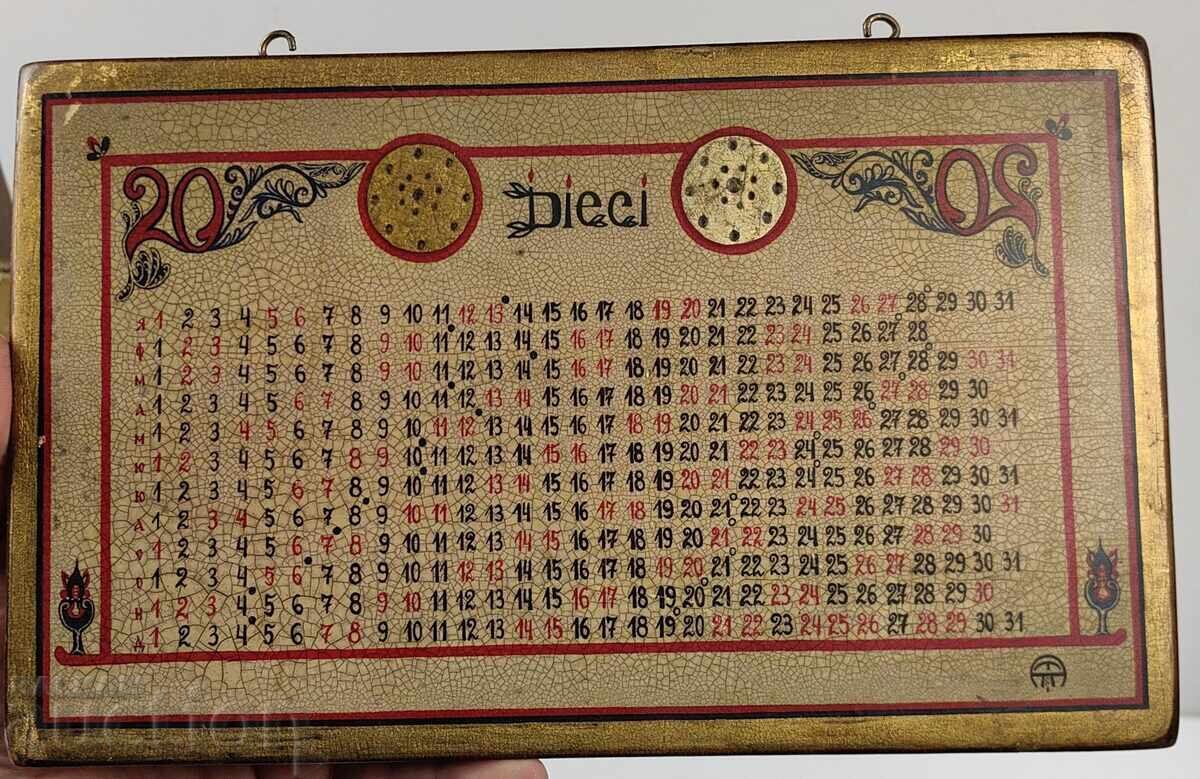 20 Dieci 02
я 1 2 3 4 5 6 7 8 9 10 11 12 13 14 15 16 17 18 19 20 21 22 23 24 25 26 27 28 29 30 31
ф 1 2 3 4 5 6 7 8 9 10 11 12 13 14 15 16 17 18 19 20 21 22 23 24 25 26 27 28
м 1 2 3 4 5 6 7 8 9 10 11 12 13 14 15 16 17 18 19 20 21 22 23 24 25 26 27 28 29 30 31
а 1 2 3 4 5 6 7 8 9 10 11 12 13 14 15 16 17 18 19 20 21 22 23 24 25 26 27 28 29 30
м 1 2 3 4 5 6 7 8 9 10 11 12 13 14 15 16 17 18 19 20 21 22 23 24 25 26 27 28 29 30 31
ю 1 2 3 4 5 6 7 8 9 10 11 12 13 14 15 16 17 18 19 20 21 22 23 24 25 26 27 28 29 30
ю 1 2 3 4 5 6 7 8 9 10 11 12 13 14 15 16 17 18 19 20 21 22 23 24 25 26 27 28 29 30 31
а 1 2 3 4 5 6 7 8 9 10 11 12 13 14 15 16 17 18 19 20 21 22 23 24 25 26 27 28 29 30 31
с 1 2 3 4 5 6 7 8 9 10 11 12 13 14 15 16 17 18 19 20 21 22 23 24 25 26 27 28 29 30
о 1 2 3 4 5 6 7 8 9 10 11 12 13 14 15 16 17 18 19 20 21 22 23 24 25 26 27 28 29 30 31
н 1 2 3 4 5 6 7 8 9 10 11 12 13 14 15 16 17 18 19 20 21 22 23 24 25 26 27 28 29 30
д 1 2 3 4 5 6 7 8 9 10 11 12 13 14 15 16 17 18 19 20 21 22 23 24 25 26 27 28 29 30 31